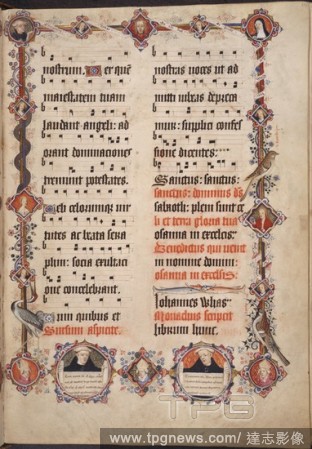 nostrum. Per quē
maiestatem tuam
laudant angeli: ad
orant dominationes
tremunt potestates.
Celi celorumque uir
tutes ac beata sera
phin: socia exultaci
one concelebrant.
Cum quibus et
Sursum aspicite.
nostras uoces ut ad
mitti iubeas depreca
mur: supplici confes
sione dicentes.
Sanctus: sanctus:
sanctus: dominus dē
sabaoth: pleni sunt ce
li et terra gloria tua
osanna in excelsis.
Benedictus qui uenit
in nomine domini:
osanna in excelsis
Iohannes Whas:
Monachus scripcit
librum hunc.
TPG
www.tpgnews.com/ 達志影像